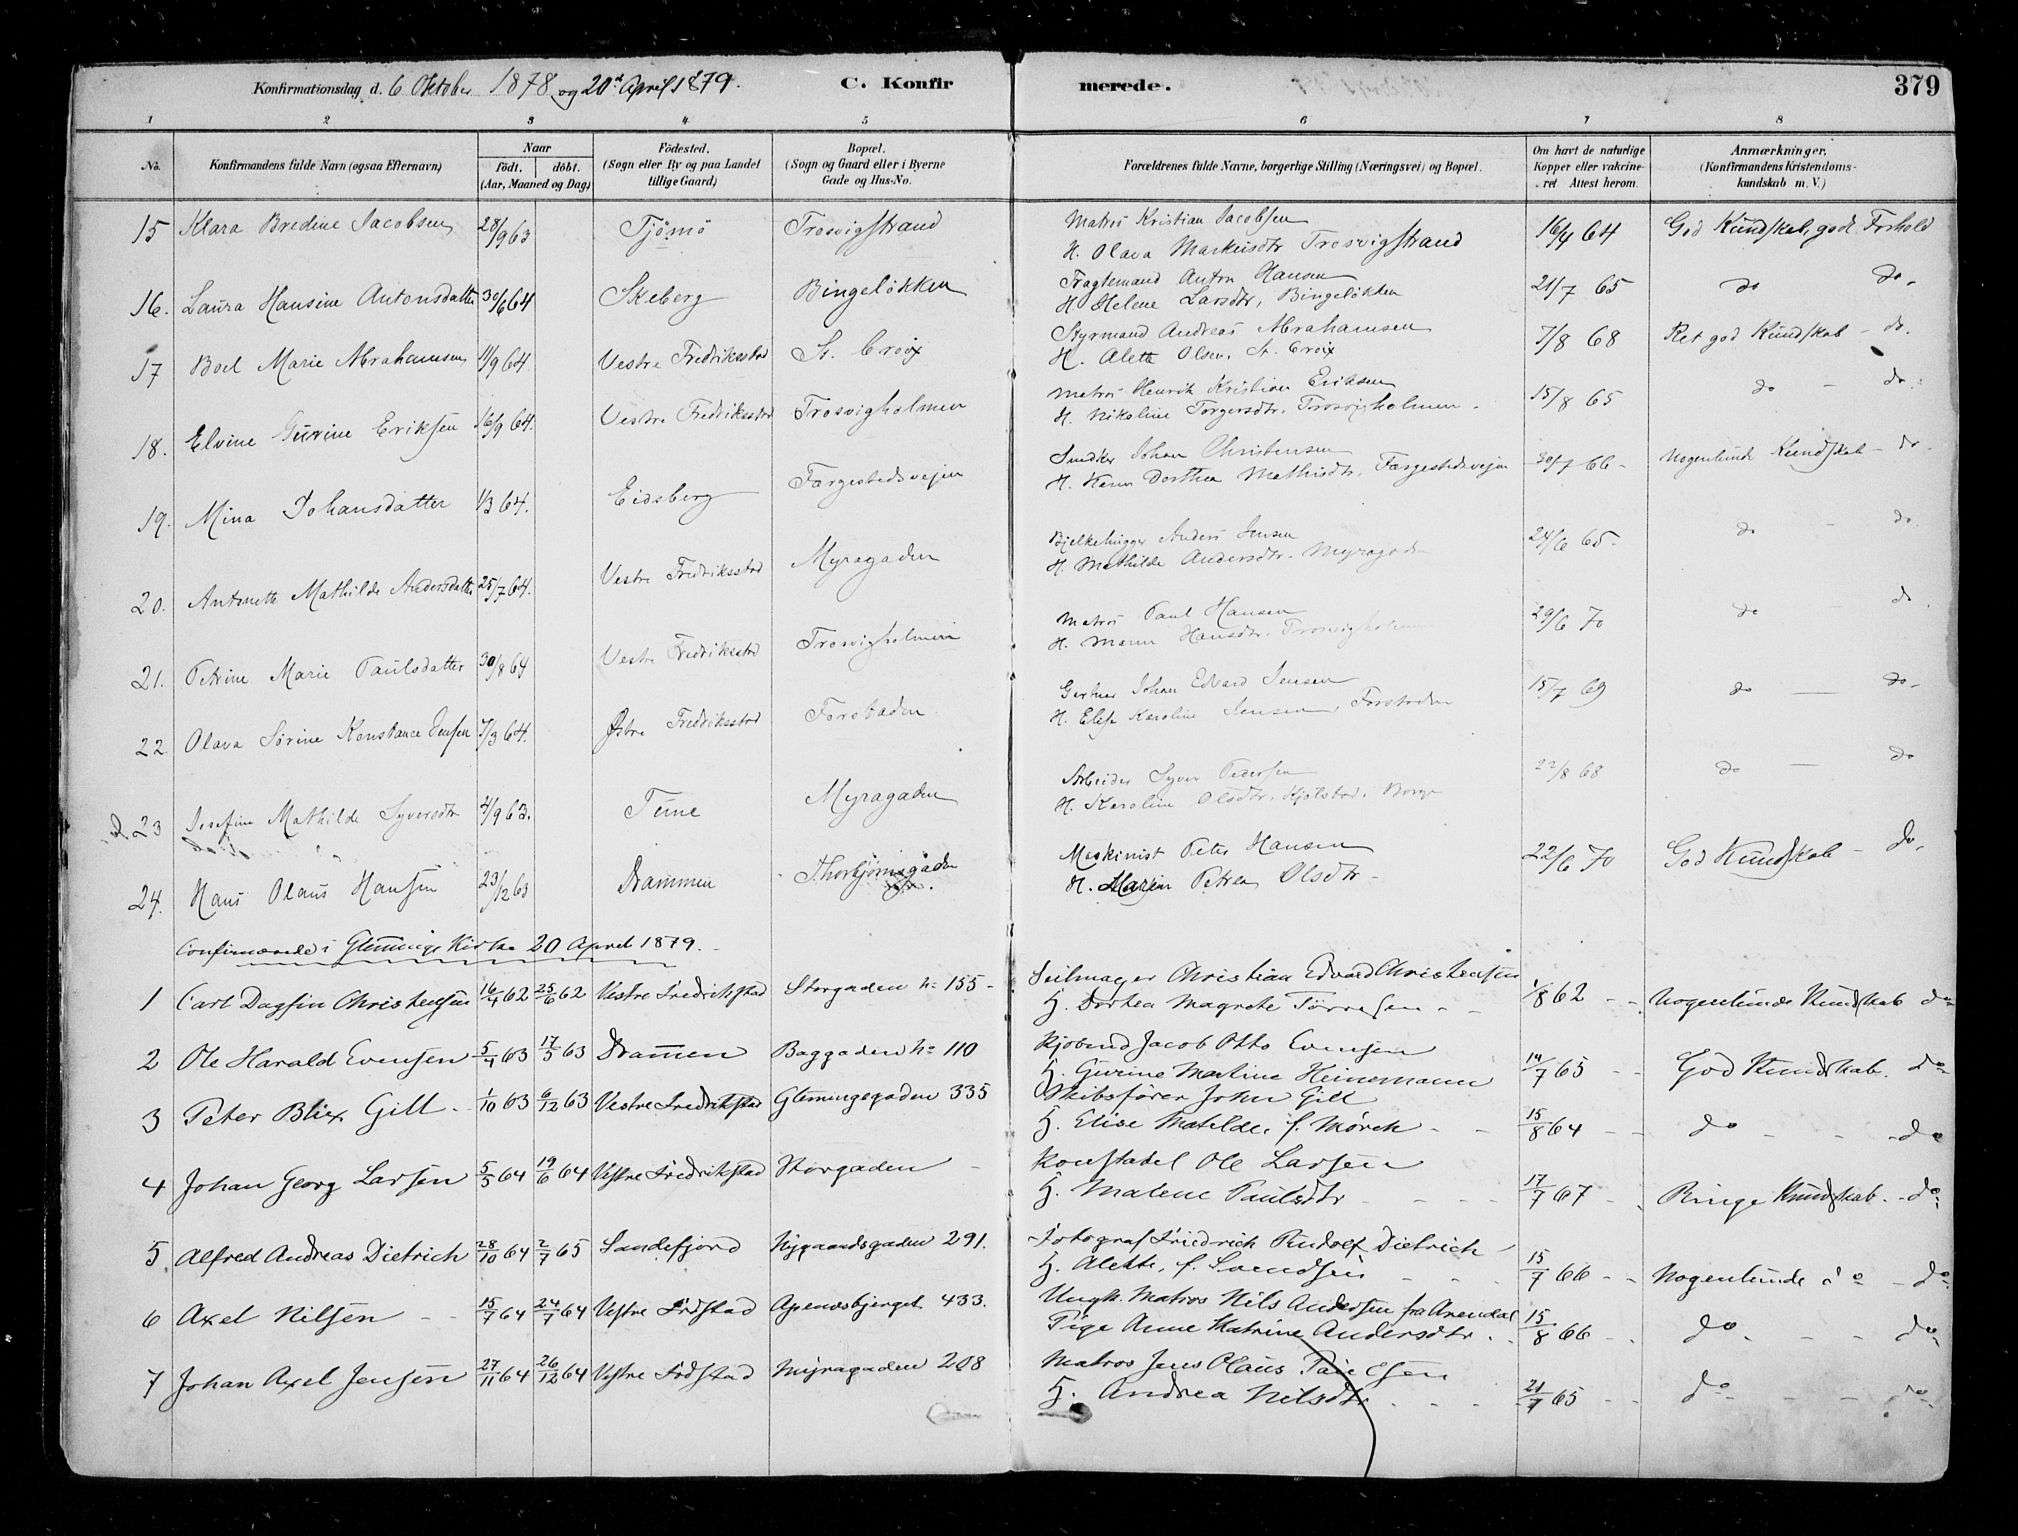 Konfirmationsdag d. 6 Oktober 1878 og 20de April 1879. C. Konfirmerede. 379
1 2 3 4 5 6 7 8
No. Konfirmandens fulde Navn (ogsaa Efternavn) Naar født. døbt. (Aar, Maaned og Dag) Fødested. (Sogn eller By og paa Landet tillige Gaard) Bopæl. (Sogn og Gaard eller i Byerne Gade og Hus-No. Forældrenes fulde Navne, borgerlige Stilling (Næringsvei) og Bopæl. Om havt de naturlige Kopper eller vakcineret Attest herom. Anmærkninger. (Konfirmandens Kristendomskundskab m. V.)
15 Klara Bredine Jacobsen 28/9 63 Tjömö Trosvigstrand Matros Kristian Jacobsen 16/4 64 God Kundskab, godt Forhold
H. Olava Markusdtr Trosvigstrand
16. Laura Hansine Antonsdatter 30/6 64 Skeberg Bingeløkken Fragtemand Anton Hansen 21/7 65 do do.
H. Helene Larsdtr, Bingeløkken
17 Boel Marie Abrahamsen 11/9 64 Vestre Fredriksstad St. Croix Styrmand Andreas Abrahamsen 7/8 68 Ret god Kundskab - do.
H. Alette Olsen, St. Croix
18. Elvine Gurine Eriksen 16/9 64. Vestre Fredriksstad Trosvigholmen Matros Henrik Kristian Eriksen 15/8 65 do - do.
H. Nikoline Torgersdtr, Trosvigholmen.
19. Mina Johansdatter 1/3 64. Eidsberg Færgestedsveien Snedker Johan Christensen 30/7 66 - Nogenlunde Kundskab - do.
H. Karen Dorthea Mathisdtr. Færgestedsveien
20. Antonette Mathilde Andersdatter 25/7 64. Vestre Fredriksstad Myragaden Bjelkehugger Anders Jensen 24/6 65. do - do.
H. Mathilde Andersdtr. Myragaden
21. Petrine Marie Paulsdatter 30/8 64 Vestre Fredriksstad Trosvigholmen Matros Paul Hansen 29/6 70 do - do
H. Maren Hansdtr. Trosvigholmen
22 Olava Sørine Konstance Jensen 7/3 64. Østre Fredriksstad Forstaden Gartner Johan Edvard Jensen 15/7 69 do - do.
H. Elise Karoline Jensen, Forstaden
23 Josefine Mathilde Syversdtr 4/9 63. Tune Myragaden Arbeider Syver Pedersen 22/8 68 do - do
H. Karoline Olsdtr. Kjølstad, Borge
24. Hans Olaus Hansen 23/12 63 Drammen Thorbjørnsgaden Maskinist Peter Hansen 22/6 70 God Kundskab - do.
H. Maren Petrea Olsdtr -
Confirmerede i Glemminge Kirke 20 April 1879.
1 Carl Dagfin Christensen 16/4 62 25/6 62 Vestre Fredrikstad Storgaden No 155 - Seilmager Christian Edvard Christensen 1/8 62 - - Nogenlunde Kundskab do
H. Dorthea Magrete Tørresen - -
2 Ole Harald Evensen 5/4 63 17/5 63 Drammen Baggaden No 110 Kjøbmd Jacob Otto Evensen 14/7 65 - - God Kundskab. do
H. Gurine Martine Heinemann
3 Peter Blix Gill - 1/10 63 6/12 63 Vestre Fredrikstad Glemingegaden 335 Skibsfører John Gill 15/8 64 - - do - - - do
H. Elise Matilde, f. Mørch - -
4 Johan Georg Larsen 5/5 64 19/6 64 Vestre Fredrikstad Storgaden - Konstabel Ole Larsen 17/7 67 - Ringe Kundskab. - do
H. Malene Paulsdtr - - -
5 Alfred Andreas Dietrich 28/10 64 2/7 65 Sandefjord Nygaardsgaden 291. Fotograf Friedrich Rudolf Dietrich 15/7 66 - - Nogenlunde do - do
H. Alette, f. Svendsen - - -
6 Axel Nilsen - - 15/7 64 24/7 64 Vestre Frdstad Apenesbjerget 433. Ungk. Matros Nils Andersen fra Arendal 15/8 66 - - do. - - do.
Pige Anne Katrine Andersdtr. -
7 Johan Axel Jensen 27/11 64 26/12 64 Vestre Frdstad Myragaden 208 Matros Jens Olaus 21/7 65 - - do - - - do
H. Andrea Nilsdtr - - -